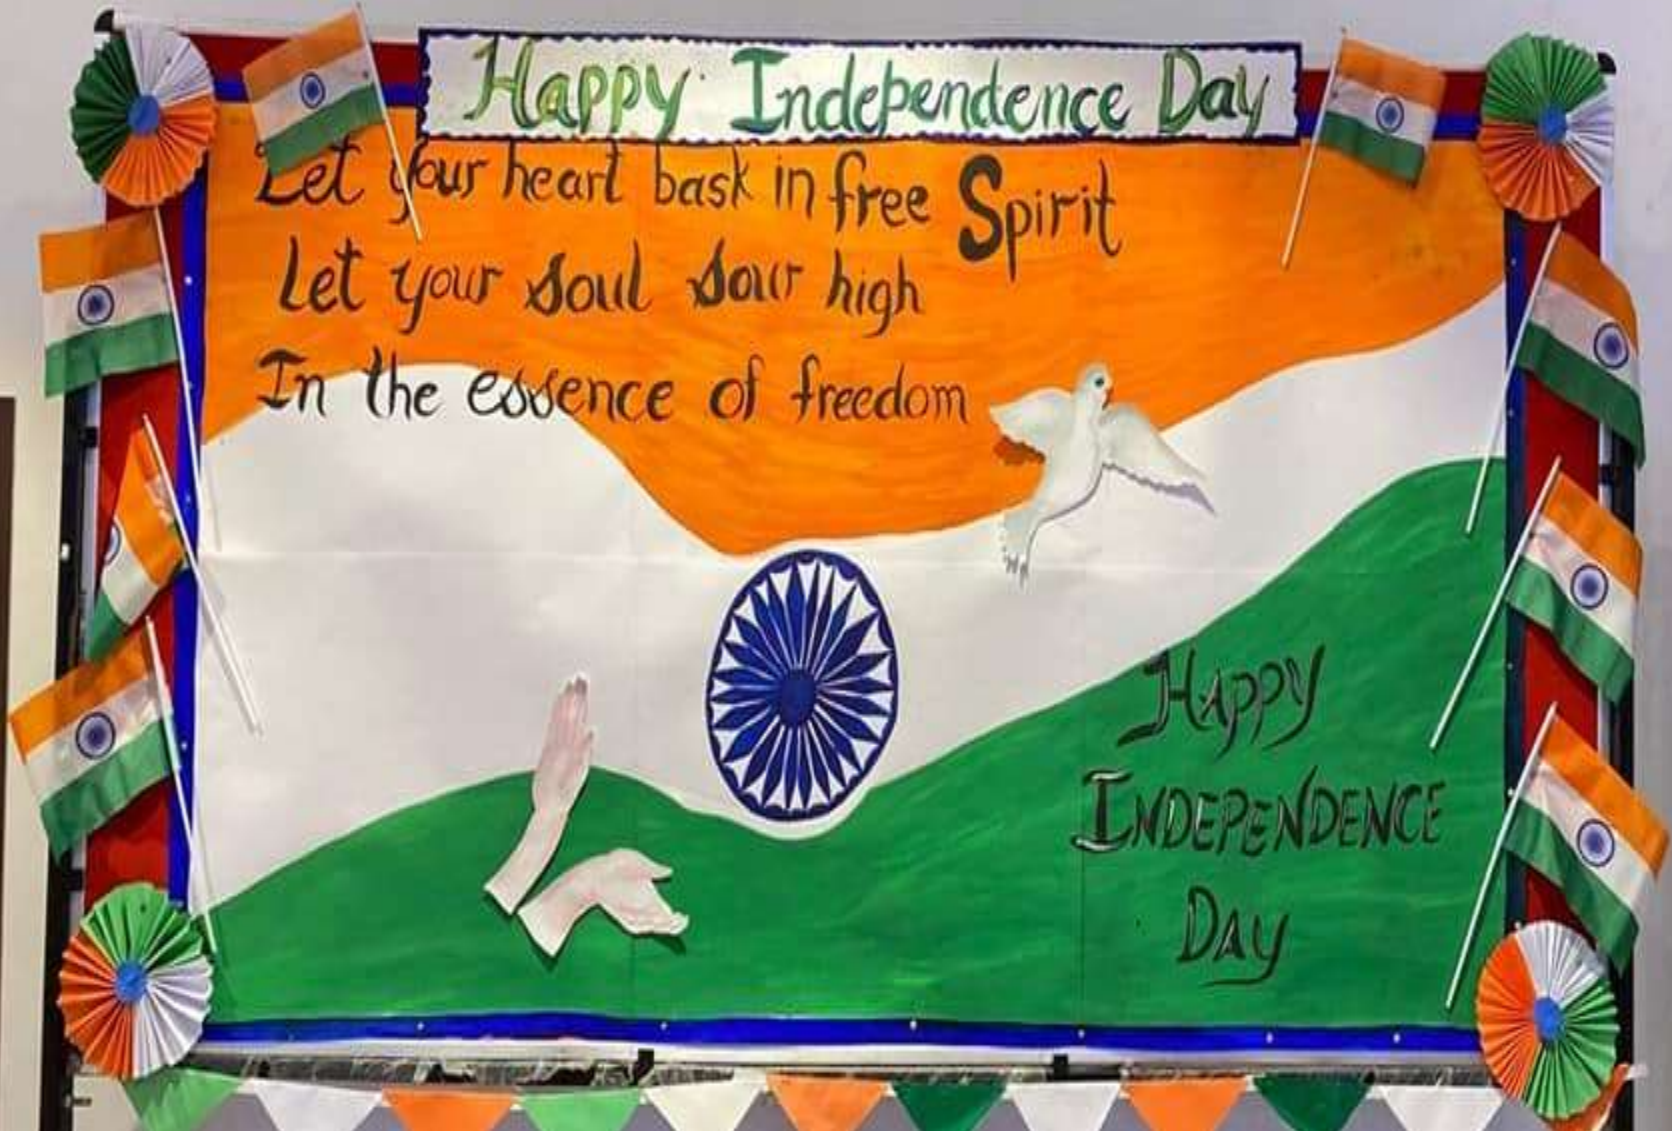 Happy Independence Day
Let your heart bask in free Spirit
Let your soul sour high
In the essence of freedom
HAPPY
INDEPENDENCE
DAY